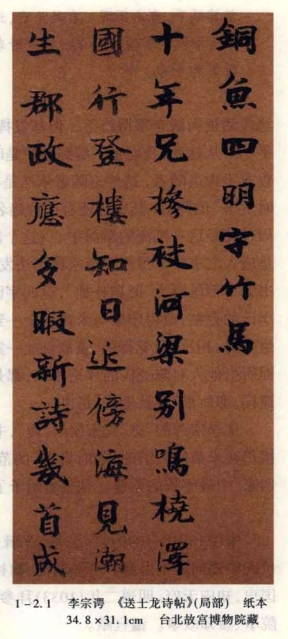 銅魚四明守竹馬
十年兄摻袂河梁别鳴橈澤
國行登樓知日近傍海見潮
生郡政應多暇新詩幾首成
1-2.1 李宗谔 《送士龙诗帖》(局部) 纸本
34.8×31.1cm 台北故宫博物院藏